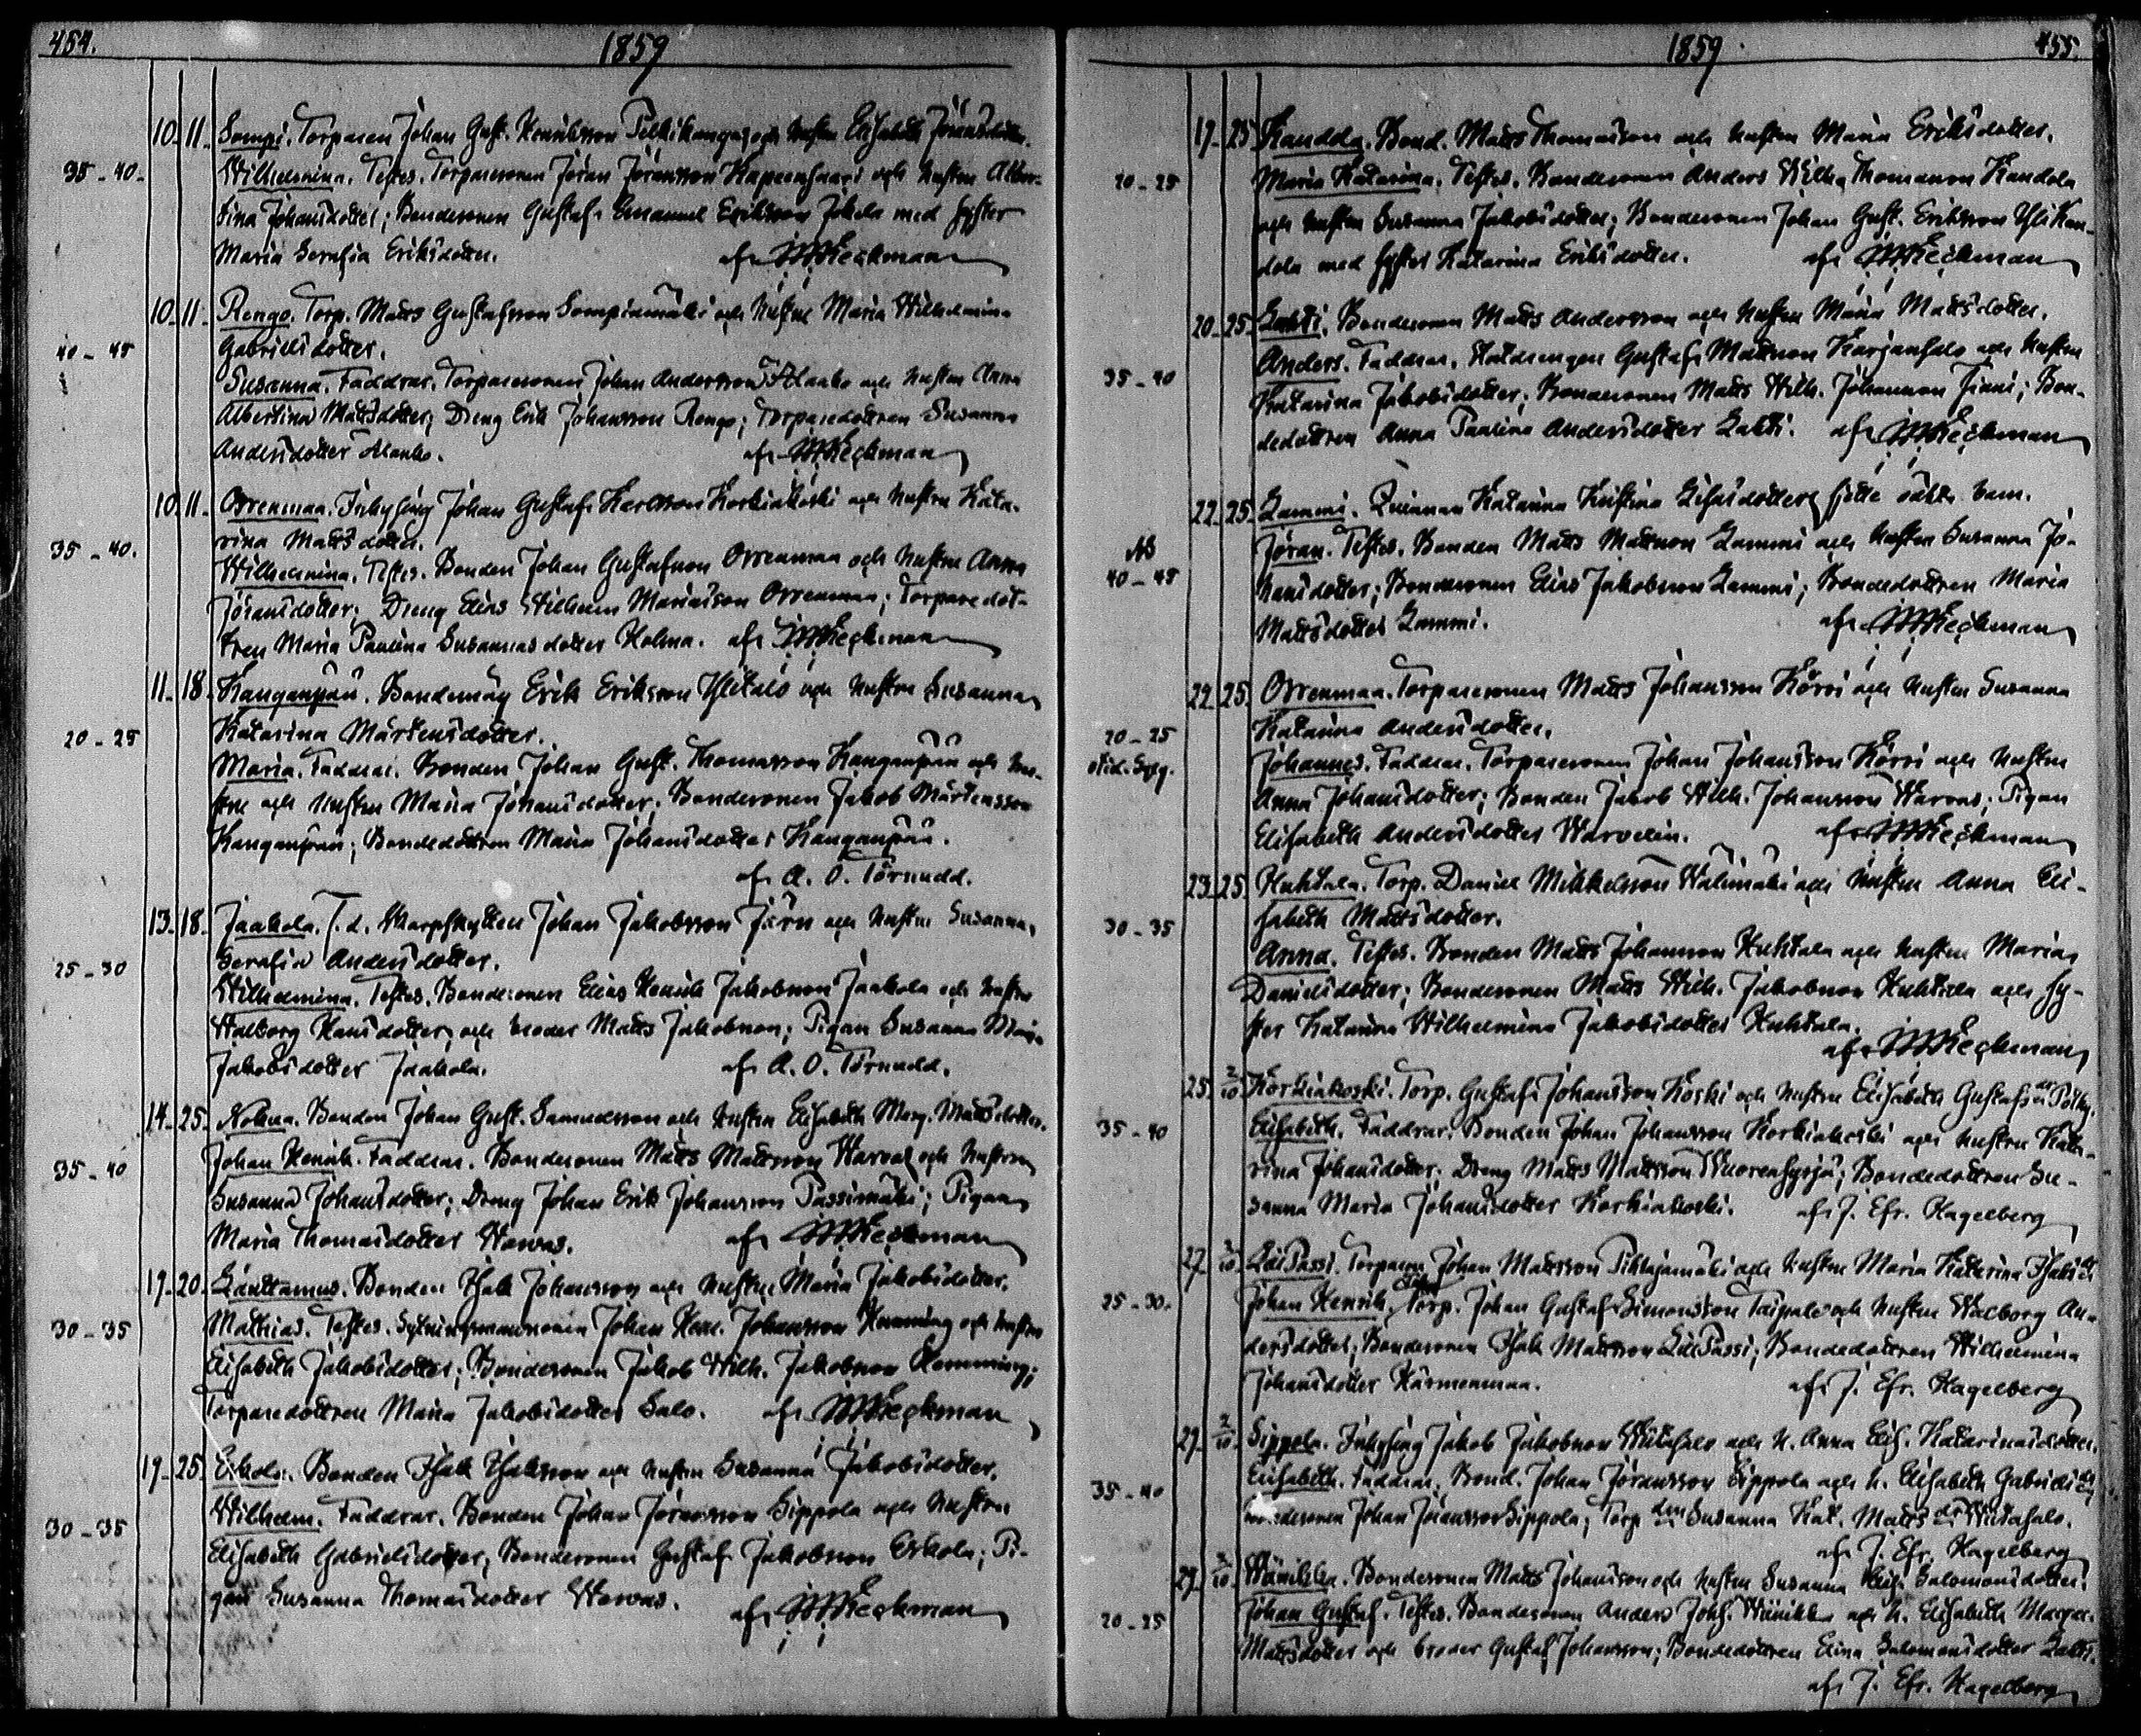 454.
1859
10. 11. Sompi. Torparen Johan Gust. Henriksson Pelkikangas och hustru Elisabeth Jöransdotter.
35-40. Wilhelmina. Testes. Torparesonen Jöran Jöransson och hustru Alber-
tina Johansdotter; Bondesonen Gustaf Emanuel Eriksson Jokela med syster
Maria Serafia Eriksdotter. af Heckman
10. 11. Rengo. Torp. Matts Gustafsson Sompinmäki och hustru Maria Wilhelmina
40-45 Gabrielsdotter.
Susanna. Faddrar. Torparesonen Johan Andersson Alanko och hustru Anna
Albertina Mattsdotter; Dreng Erik Johansson Rengo; Torparedottren Susanna
Andersdotter Alanko. af Heckman
10. 11. Orrenmaa. Inhysing Johan Gustaf Karlsson Korkiakoski och hustru Kata-
35-40. rina Mattsdotter.
Wilhelmina. Testes. Bonden Johan Gustafsson Orrenmaa och hustru Anna
Jöransdotter; Dreng Elias Wilhelm Mariasson Orrenmaa; Torparedot-
tren Maria Paulina Susannasdotter Holma. af Heckman
11. 18. Kangaspää. Bondemåg Erik Eriksson Ylitalo och hustru Susanna
20-25 Katarina Mårtensdotter.
Maria. Faddrar. Bonden Johan Gust. Thomasson Kangaspää och hu-
stru och hustru Maria Johansdotter; Bondesonen Jakob Mårtensson
Kangaspää; Bondedottren Maria Johansdotter Kangaspää.
af A. O. Törnudd.
13. 18. Jaakola. f. d. Skarpskytten Johan Jakobsson Järn och hustru Susanna
25-30 Serafia Andersdotter.
Wilhelmina. Testes. Bondesonen Elias Henrik Jakobsson Jaakola och hustru
Walborg Hansdotter; och broder Matts Jakobsson; Pigan Susanna Maria
Jakobsdotter Jaakola. af A. O. Törnudd.
14. 25. Holma. Bonden Johan Gust. Samuelsson och hustru Elisabeth Marg. Mattsdotter.
35-40 Johan Henrik. Faddrar. Bondesonen Matts Mattsson Warvas och hustru
Susanna Johansdotter; Dreng Johan Erik Johansson Passimäki; Pigan
Maria Thomasdotter Warvas. af Heckman
17. 20. Länttamus. Bonden Isak Johansson och hustru Maria Jakobsdotter.
30-35 Mathias. Testes. Sytningsmansonen Johan Henr. Johansson Hemming och hustru
Elisabeth Jakobsdotter; Bondesonen Jakob Wilh. Jakobsson Hemming;
Torparedottren Maria Jakobsdotter Salo. af Heckman
17. 25. Erkola. Bonden Isak Isaksson och hustru Susanna Jakobsdotter.
30-35 Wilhelm. Faddrar. Bonden Johan Jöransson Sippola och hustru
Elisabeth Gabrielsdotter; Bondesonen Gustaf Jakobsson Erkola; Pi-
gan Susanna Thomasdotter Warvas. af Heckman
1859.
455.
17. 25. Kandola. Bond. Matts Thomasson och hustru Maria Eriksdotter.
20-25 Maria Katarina. Testes. Bondesonen Anders Wilh. Thomasson Kandola
och hustru Susanna Jakobsdotter; Bondesonen Johan Gust. Eriksson Yli Kan-
dola med syster Katarina Eriksdotter. af Heckman
20. 25. Lahti. Bondesonen Matts Andersson och hustru Maria Mattsdotter.
35-40 Anders. Faddrar. Statdrengen Gustaf Mattsson Karjansalo och hustru
Katarina Jakobsdotter; Bondesonen Matts Wilh. Johansson Finni; Bon-
dedottren Anna Paulina Andersdotter Lahti. af Heckman
22. 25. Lammi. Quinnan Katarina Kristina Elisasdotters sjette oäkta barn.
40-45 Jöran. Testes. Bonden Matts Mattsson Lammi och hustru Susanna Jo-
hansdotter; Bondesonen Elias Jakobsson Lammi; Bondedottren Maria
Mattsdotter Lammi. af Heckman
22. 25. Orrenmaa. Torparesonen Matts Johansson Körri och hustru Susanna
20-25 Katarina Andersdotter.
Johannes. Faddrar. Torparesonen Johan Johansson Körri och hustru
Anna Johansdotter; Bonden Jakob Wilh. Johansson Warvas; Pigan
Elisabeth Andersdotter Warvelin. af Heckman
23. 25. Huhtala. Torp. Daniel Mikkelsson Wälimäki och hustru Anna Eli-
30-35 sabeth Mattsdotter.
Anna. Testes. Bonden Matts Johansson Huhtala och hustru Maria
Danielsdotter; Bondesonen Matts Wilh. Jakobsson Huhtala och sy-
ster Katarina Wilhelmina Jakobsdotter Huhtala.
af Heckman
25. 2/10. Korkiakoski. Torp. Gustaf Johansson Koski och hustru Elisabeth Gustafs dr
35-40 Elisabeth. Faddrar. Bonden Johan Johansson Korkiakoski och hustru Kata-
rina Johansdotter; Dreng Matts Mattsson Wuorensyrjä; Bondedottren Su-
sanna Maria Johansdotter Korkiakoski. af J. Efr. Hagelberg
27. 2/10. Lill Passi. Torparen Johan Mattsson Pihlajamäki och hustru Maria Katarina Isaks dr
25-30. Johan Henrik. Torp. Johan Gustaf Simonsson Taipale och hustru Walborg An-
dersdotter; Bondesonen Isak Mattsson Lill Passi; Bondedottren Wilhelmina
Johansdotter Härmenmaa. af J. Efr. Hagelberg
27. 2/10. Sippola. Inhysing Jakob Jakobsson Wiitasalo och h. Anna Elis. Katarinasdotter.
35-40 Elisabeth. Faddrar. Bond. Johan Jöransson Sippola och h. Elisabeth Gabriels dr
Bondesonen Johan Jöransson Sippola; Torp dtr Susanna Kat. Matts dr Wiitasalo.
af J. Efr. Hagelberg
29. 2/10. Wäinikkä. Bondesonen Matts Johansson och hustru Susanna Elis. Salomonsdotter.
20-25 Johan Gustaf. Testes. Bondesonen Anders Johs. Wäinikkä och h. Elisabeth Margar.
Mattsdotter och broder Gustaf Johansson; Bondedottren Elina Salomonsdotter Lahti.
af J. Efr. Hagelberg